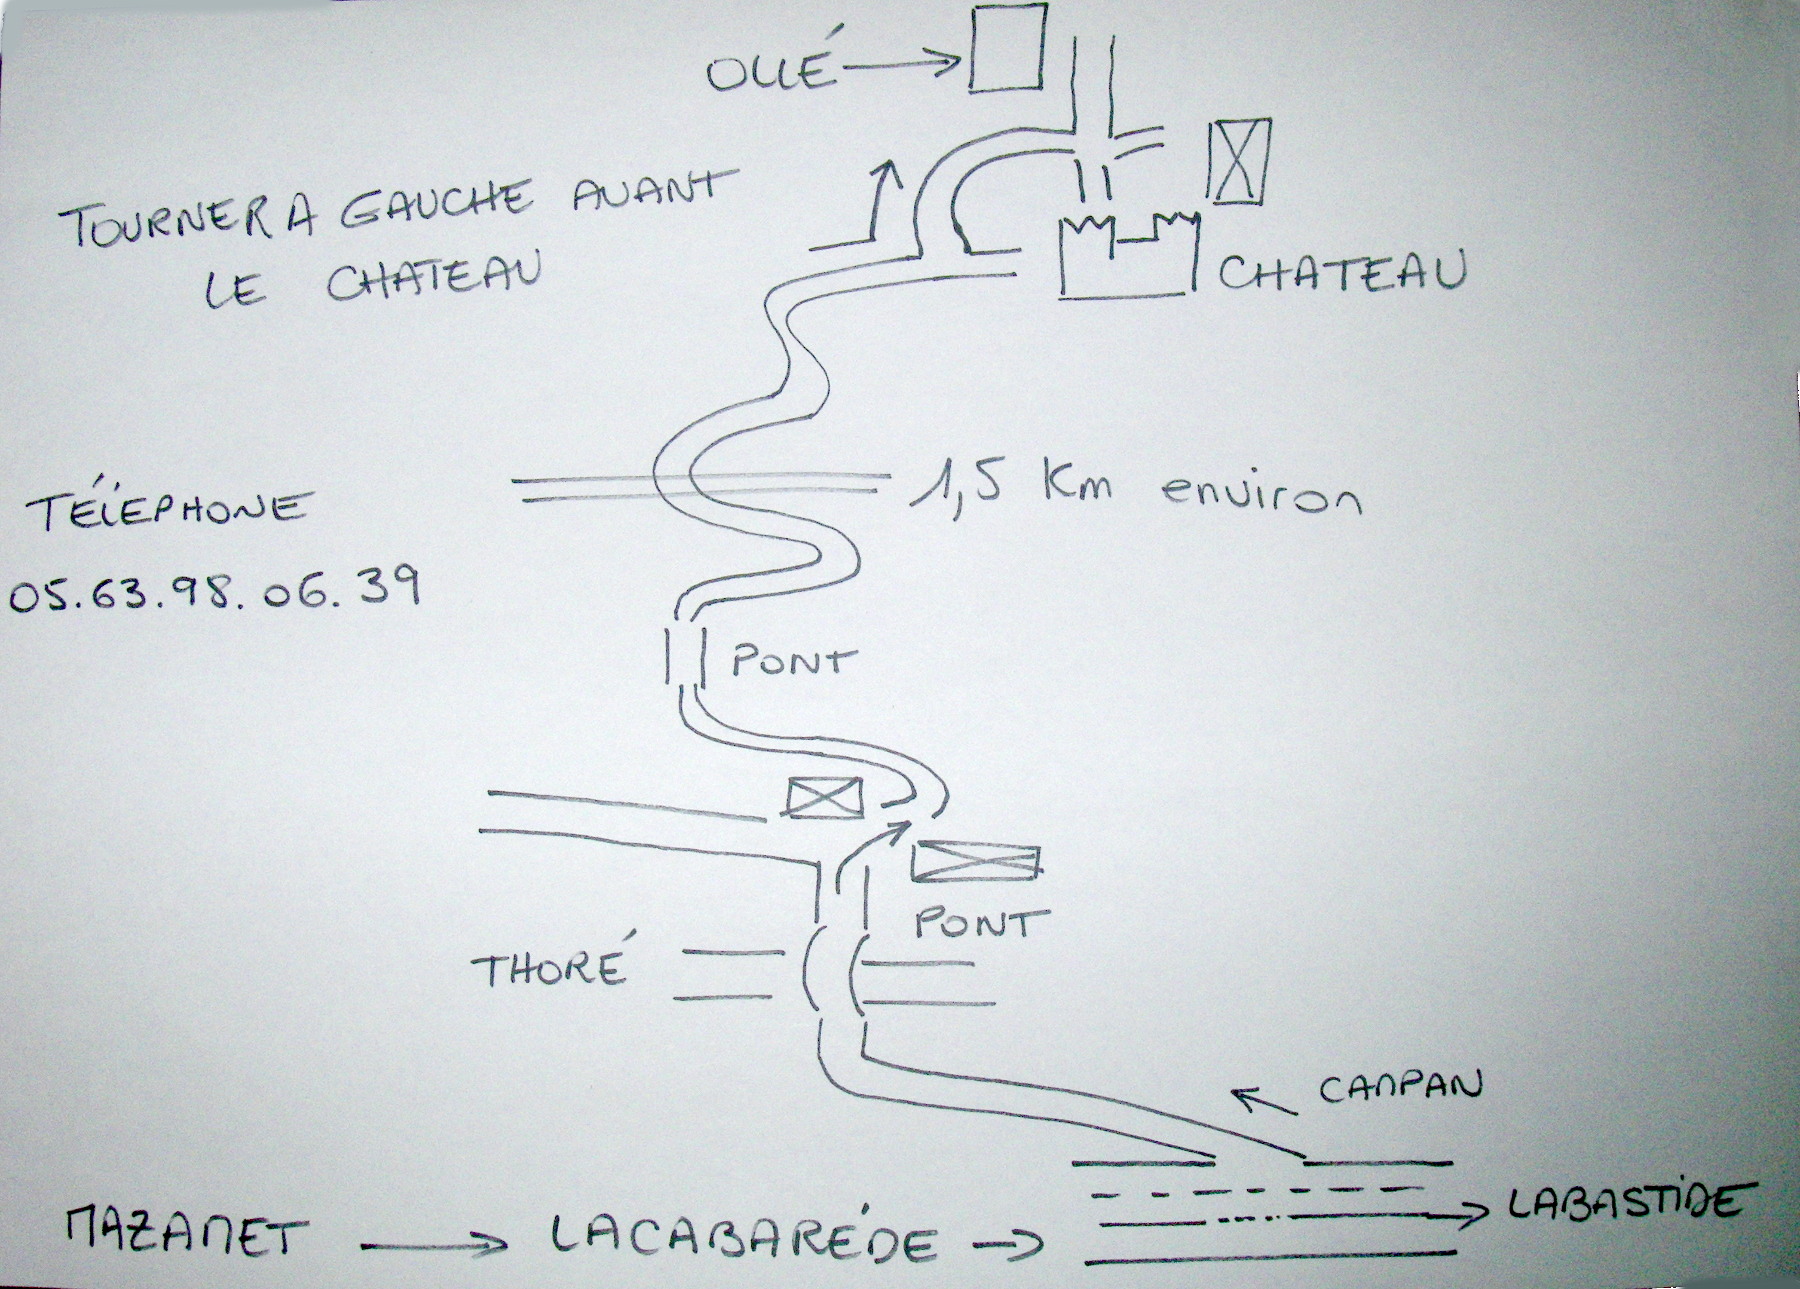 OLLÉ
TOURNER A GAUCHE AVANT
LE CHATEAU
CHATEAU
TÉLÉPHONE
1,5 Km environ
05.63.98.06.39
PONT
PONT
THORÉ
CAMPAN
MAZAMET LACABARÉDE LABASTIDE